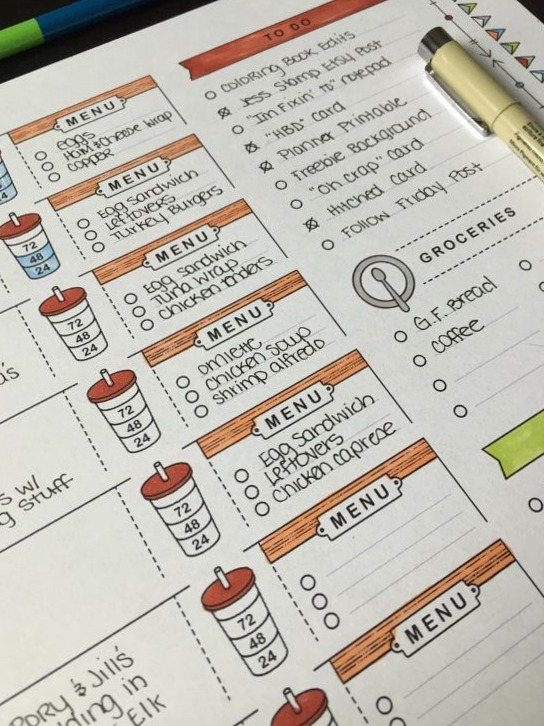 TO DO
Coloring Book Edits
Jess Stamp Etsy Post
"I'm Fixin' To" Notepad
"HBD" Card
Planner Printable
Freebie Background
"Oh Crap" Card
Hitched Card
Follow Friday Post
GROCERIES
G.F. Bread
Coffee
MENU
Eggs
Ham & Cheese Wrap
Copper
MENU
Egg Sandwich
Leftovers
Turkey Burgers
72
48
24
MENU
Egg Sandwich
Tuna Wrap
Chicken Tenders
72
48
24
MENU
Omlette
Chicken Soup
Shrimp Alfredo
72
48
24
MENU
Egg Sandwich
Leftovers
Chicken Caprese
72
48
24
MENU
72
48
24
MENU
s w/
g stuff
ory & Jill's
dding in
Elk